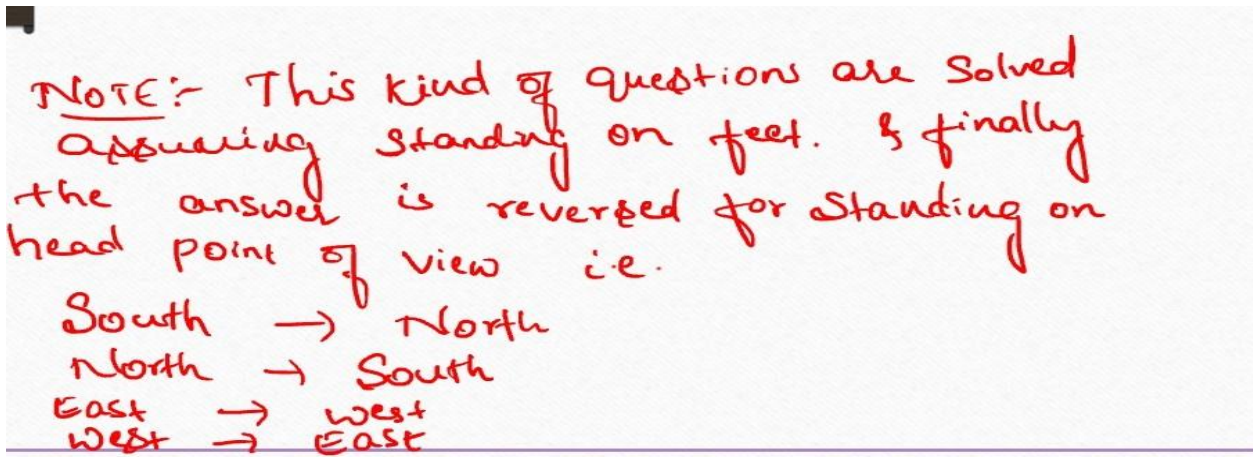 NOTE:- This kind of questions are solved
assuming standing on feet. & finally
the answer is reversed for standing on
head point of view i.e.
South → North
North → South
East → west
west → East